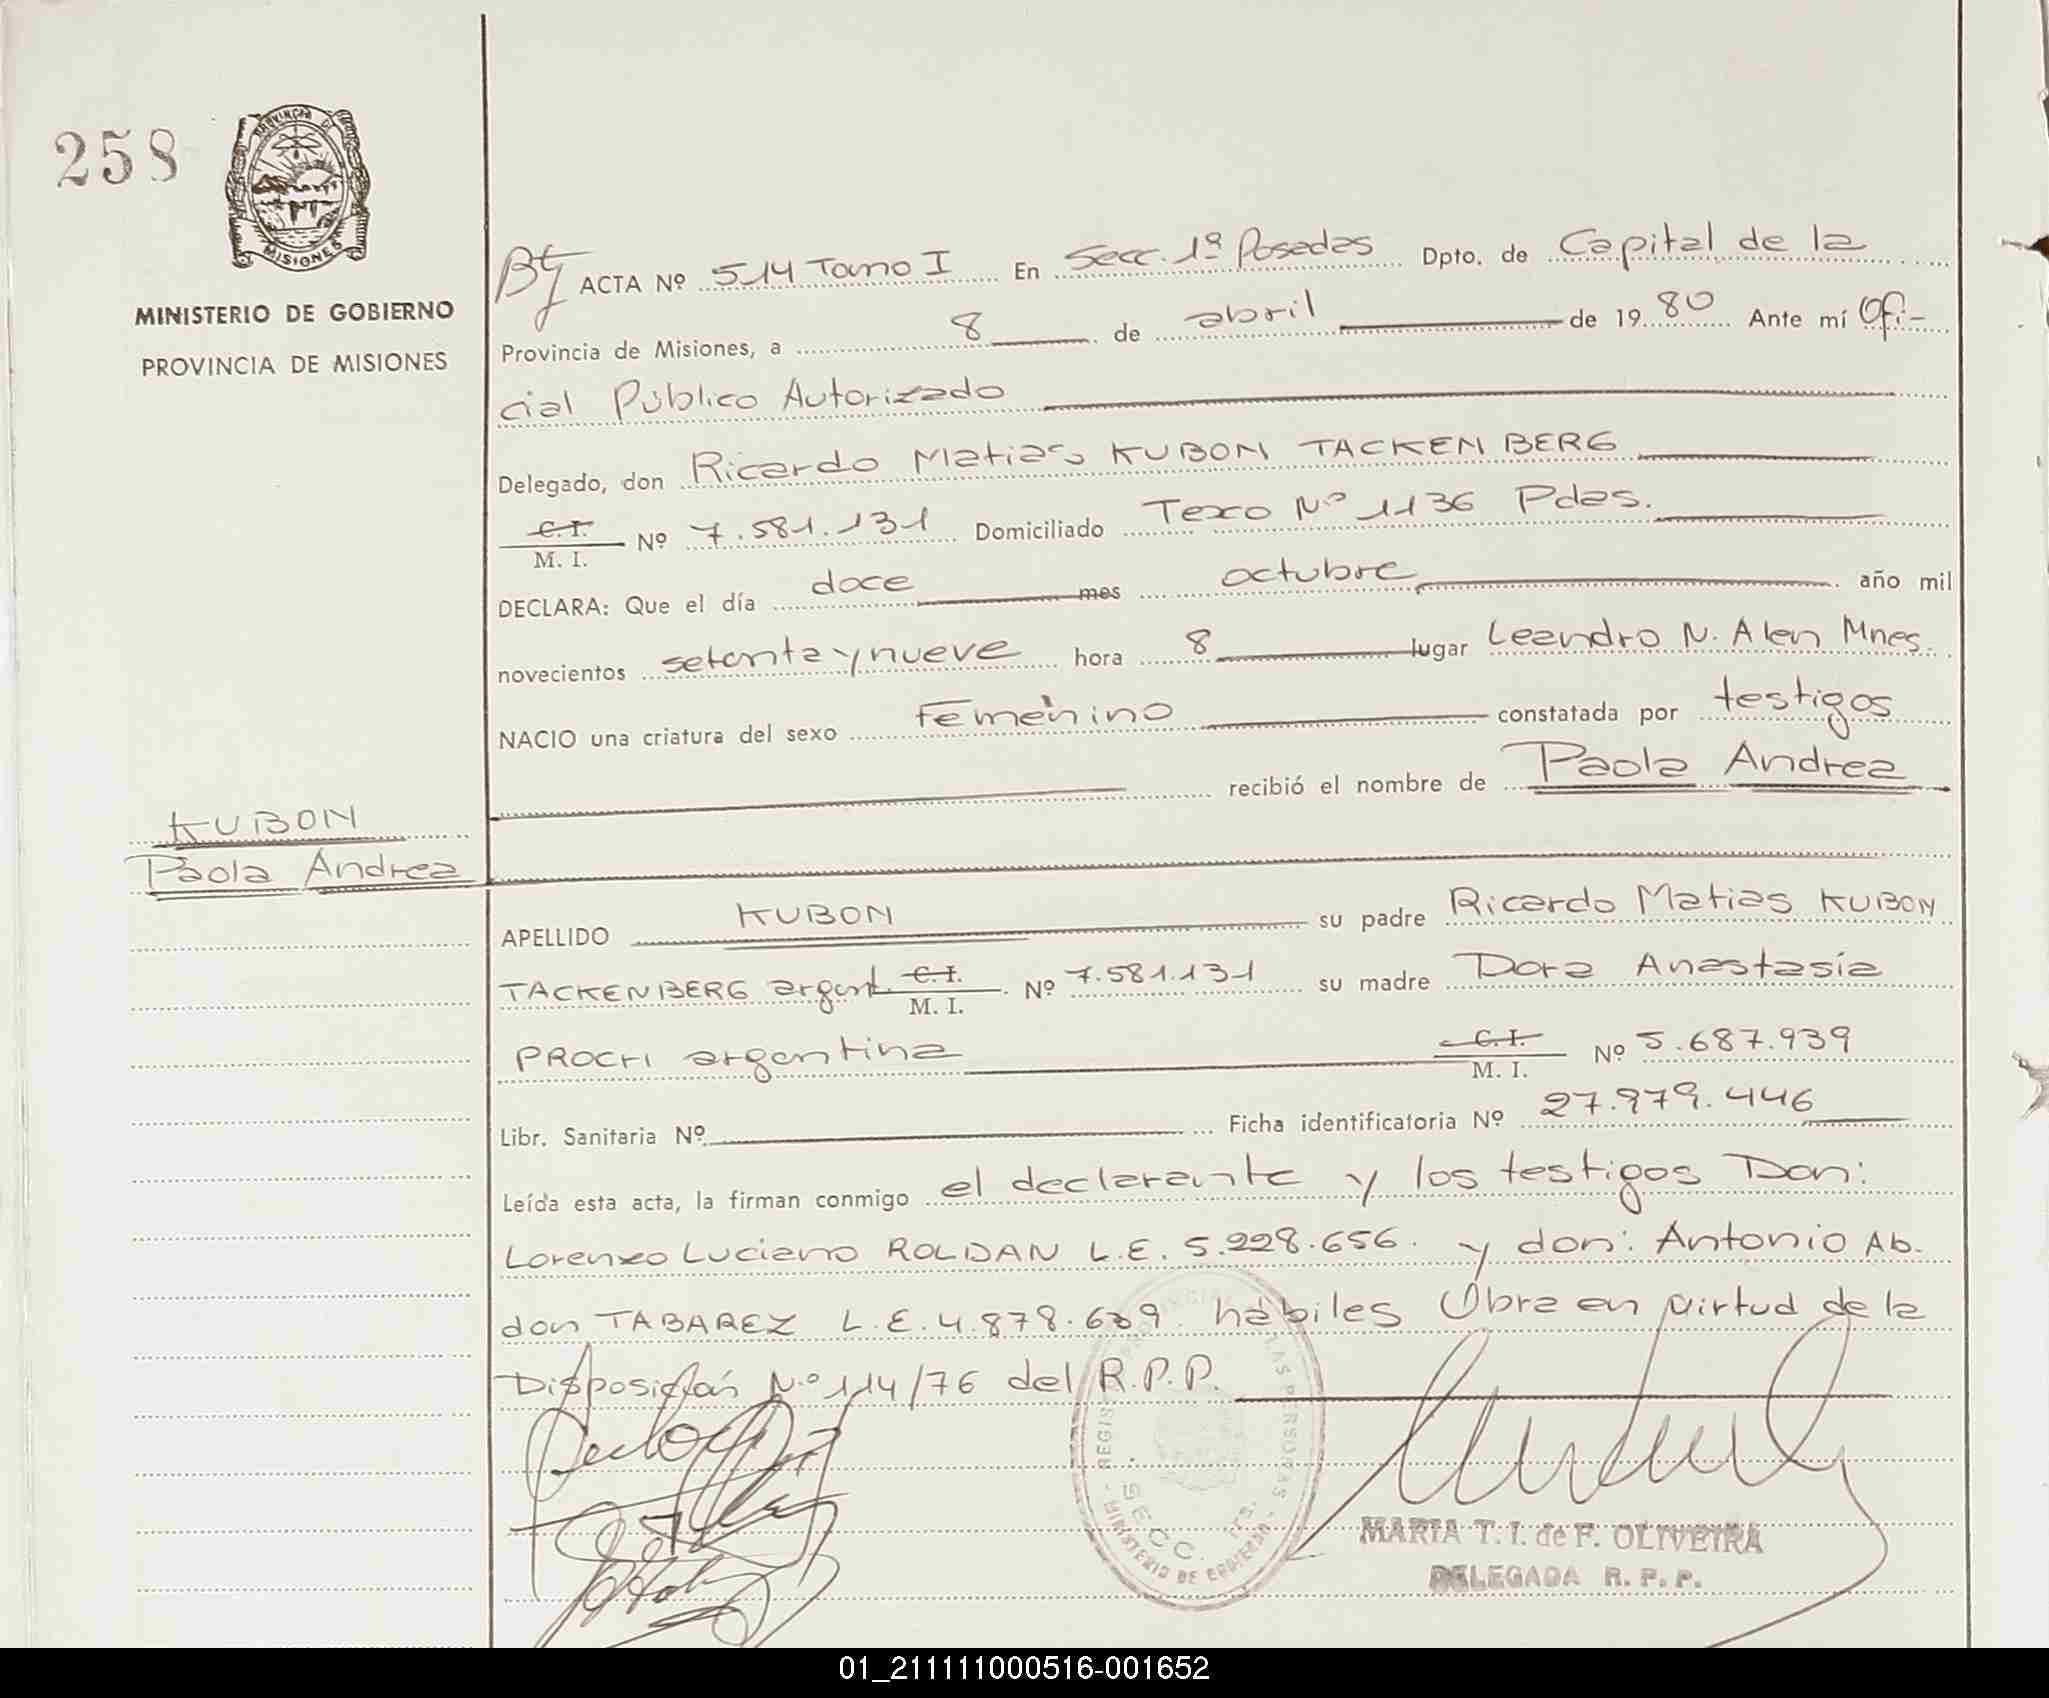 258
PROVINCIA DE
MISIONES
MINISTERIO DE GOBIERNO
PROVINCIA DE MISIONES
ACTA Nº 514 Tomo I En Secc. 1ª Posadas Dpto. de Capital de la
Provincia de Misiones, a 8 de abril de 1980 Ante mí Ofi-
cial Público Autorizado
Delegado, don Ricardo Matias KUBON TACKENBERG
C.I.
M. I. Nº 7.581.131 Domiciliado Texo Nº 1136 Pdas.
DECLARA: Que el día doce mes octubre año mil
novecientos setenta y nueve hora 8 lugar Leandro N. Alen Mnes.
NACIO una criatura del sexo Femenino constatada por testigos
recibió el nombre de Paola Andrea
KUBON
Paola Andrea
APELLIDO KUBON su padre Ricardo Matias KUBON
TACKENBERG argent. C.I. M. I. Nº 7.581.131 su madre Dora Anastasía
PROCHI argentina C.I. M. I. Nº 5.687.939
Libr. Sanitaria Nº Ficha identificatoria Nº 27.979.446
Leída esta acta, la firman conmigo el declarante y los testigos Don:
Lorenzo Luciano ROLDAN L.E. 5.228.656. y don: Antonio Ab.
don TABAREZ L.E. 4.878.689 hábiles Obra en virtud de la
Disposición N.º 114/76 del R.P.P.
REGISTRO PROVINCIAL DE LAS PERSONAS
SECC. 1ra.
MINISTERIO DE GOBIERNO
MARIA T. I. de F. OLIVEIRA
DELEGADA R. P. P.
01_211111000516-001652